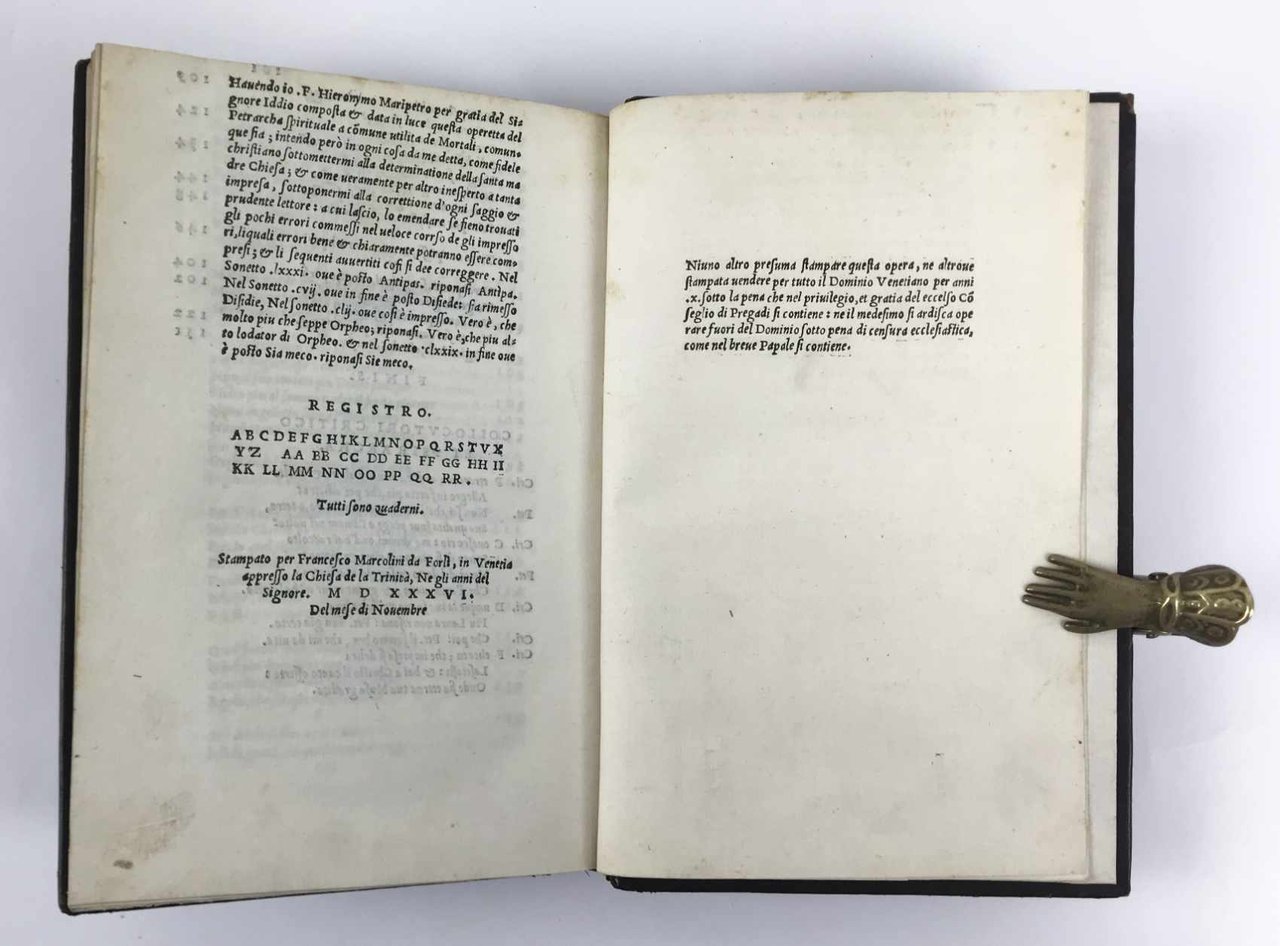 Havendo io .F. Hieronymo Maripetro per gratia del Si=
gnore Iddio composta & data in luce questa operetta del
Petrarcha spirituale a cõmune utilita de Mortali, comun=
que sia; intendo però in ogni cosa da me detta, come fidele
christiano sottomettermi alla determinatione della santa ma
dre Chiesa; & come ueramente per altro inesperto a tanta
impresa, sottoponermi alla correttione d'ogni saggio &
prudente lettore: a cui lascio, lo emendare se fieno trouati
gli pochi errori commessi nel ueloce corrso de gli impresso
ri, liquali errori bene & chiaramente potranno essere com=
presi; & li sequenti auuertiti cosi si dee correggere. Nel
Sonetto .lxxxi. oue è posto Antipas. riponasi Antipa.
Nel Sonetto .cvij. oue in fine è posto Disiede: sia rimesso
Disidie, Nel sonetto .clij. oue cosi è impresso. Vero è, che
molto piu che seppe Orpheo; riponasi. Vero è, che piu al=
to lodator di Orpheo. & nel sonetto .clxxix. in fine oue
è posto Sia meco. riponasi Sie meco.
REGISTRO.
A B C D E F G H I K L M N O P Q R S T V X
Y Z AA BB CC DD EE FF GG HH II
KK LL MM NN OO PP QQ RR.
Tutti sono quaderni.
Stampato per Francesco Marcolini da Forlì, in Venetia
appresso la Chiesa de la Trinità, Ne gli anni del
Signore. M D XXXVI.
Del mese di Nouembre
Niuno altro presuma stampare questa opera, ne altroue
stampata uendere per tutto il Dominio Venetiano per anni
.x. sotto la pena che nel priuilegio, et gratia del eccelso Cõ
seglio di Pregadi si contiene: ne il medesimo si ardisca ope
rare fuori del Dominio sotto pena di censura ecclesiastica,
come nel breue Papale si contiene.